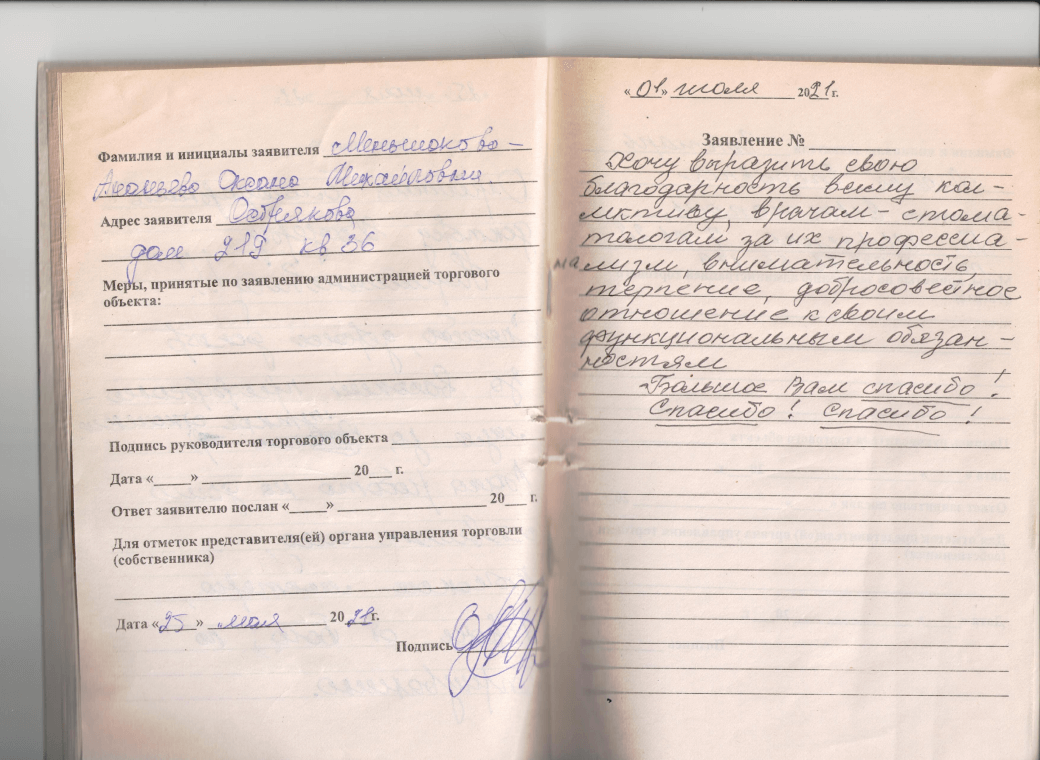 Фамилия и инициалы заявителя Меньшокова-
Оксана Михайловна
Адрес заявителя Острякова
дом 219 кв 36
Меры, принятые по заявлению администрацией торгового
объекта:
Подпись руководителя торгового объекта
Дата «____» ____________ 20___ г.
Ответ заявителю послан «____» ____________ 20___ г.
Для отметок представителя(ей) органа управления торговли
(собственника)
Дата «25» мая 2021г.
Подпись
«01» июля 2021г.
Заявление № ____________
Хочу выразить свою
благодарность всему кол-
лктиву, врачам - стома-
тологам за их профессиа-
на лизм, внимательность,
терпение, добросовестное
отношение к своим
функциональным обязан-
ностям
Большое Вам спасибо!
Спасибо! Спасибо!